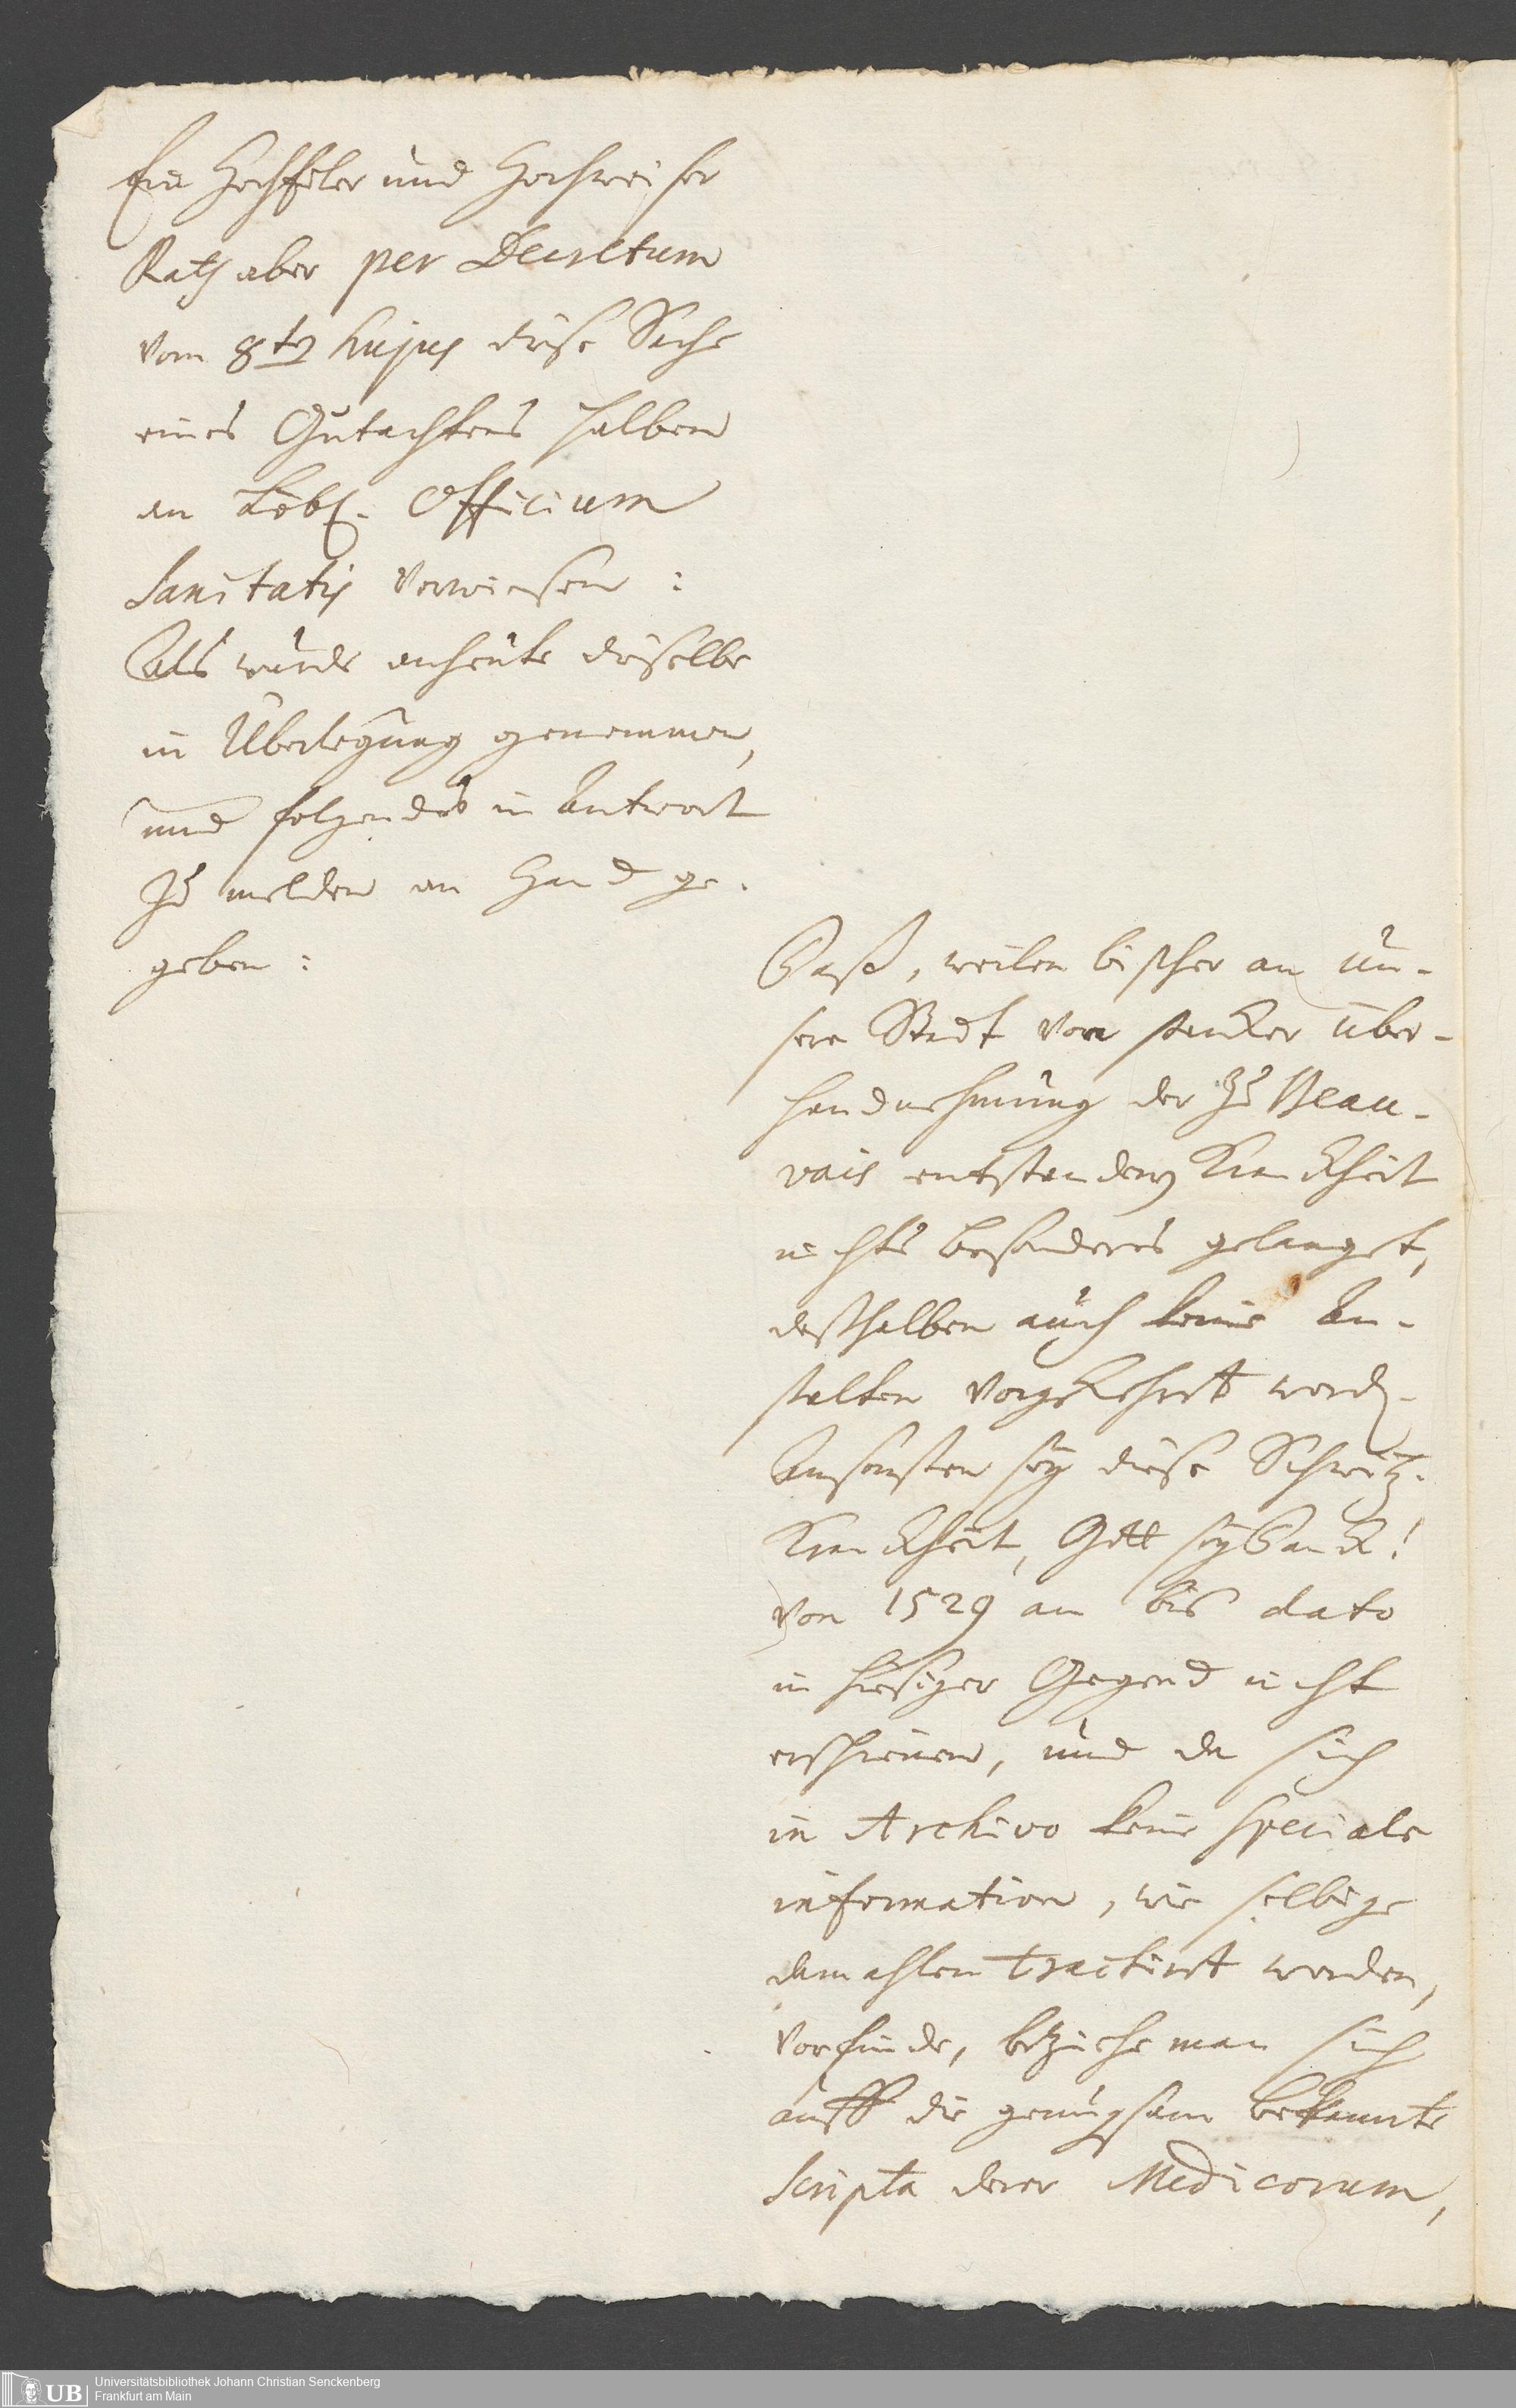 Ein Hochedler und Hochweiser
Rath aber per Decretum
vom 8ten hujus diese Sache
eines Gutachtens halben
an Löbl. Officium
Sanitatis verwiesen:
Als wurde anheute dieselbe
in Überlegung genommen,
und folgendes in Antwort
zu melden an Hand ge-
geben:
Daß, weilen bishher an un-
sere Stadt von starcker über-
handnehmung der zu Beau-
vais entstandenen Kranckheit
nichts besonderes gelanget,
desthalben auch keine An-
stalten vorgekehrt worden.
Ansonsten sey diese Schweitz-
Kranckheit, Gott sey Danck!
von 1529 an bis dato
in hiesiger Gegend nicht
erschienen, und da sich
in Archivo keine speciale
information, wie selbige
damahlen tractirt worden,
vorfinde, beziehe man sich
auff die genugsam bekannte
Scripta derer Medicorum,
Universitätsbibliothek Johann Christian Senckenberg
Frankfurt am Main
UB